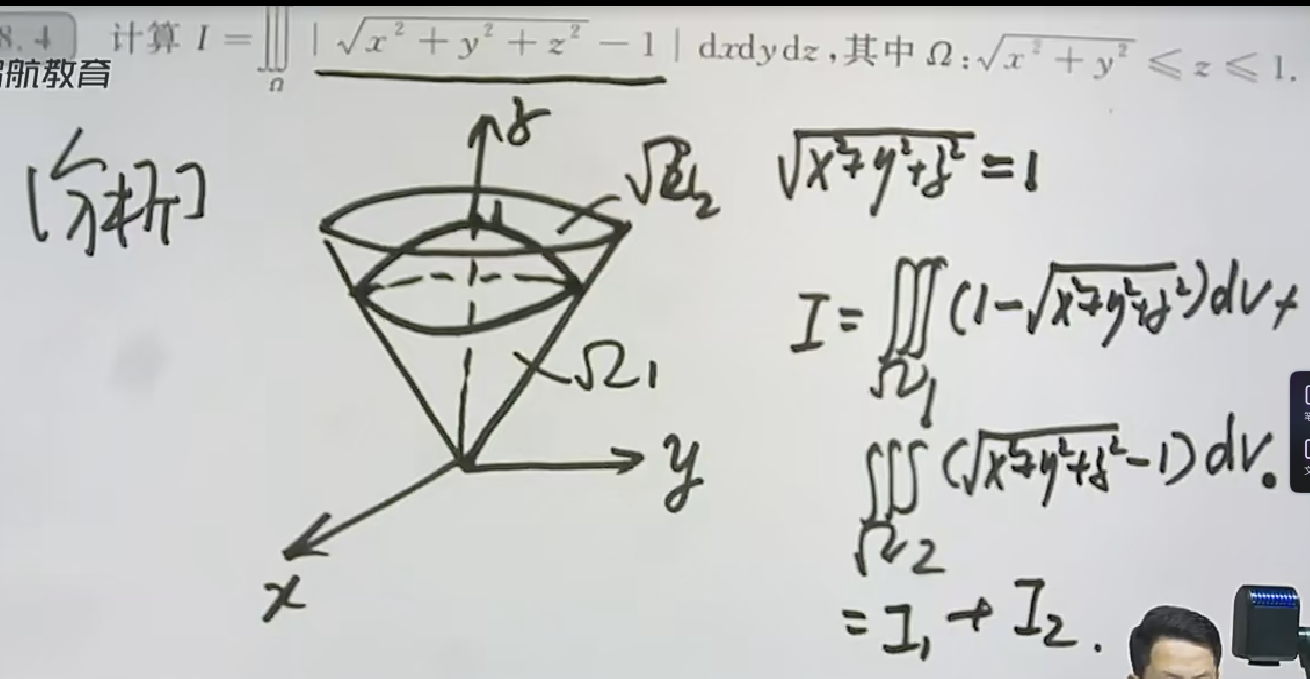 8.4 计算 I = ∭Ω | √(x² + y² + z²) − 1 | dxdydz, 其中 Ω: √(x² + y²) ≤ z ≤ 1.
航教育
[分析]
z
Ω₂
√(x²+y²+z²) = 1
1
I = ∭Ω₁ (1−√(x²+y²+z²)) dv +
Ω₁
∭Ω₂ (√(x²+y²+z²) −1) dv.
y
x
= I₁ + I₂.